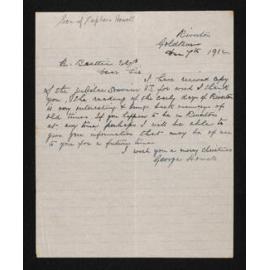 Son of Stephen Howell
Riverton
Dec 7th 1912
H. Beattie Esqr
Dear Sir
I have received copy
of the Jubilee Souvenir for wh I thank
you, the reading of the early days of Riverton
is very interesting & brings back memories of
old times. If you happen to be in Riverton
at any time perhaps I will be able to
give you information that may be of use
to you for a future time
I wish you a merry Christmas
George Howell